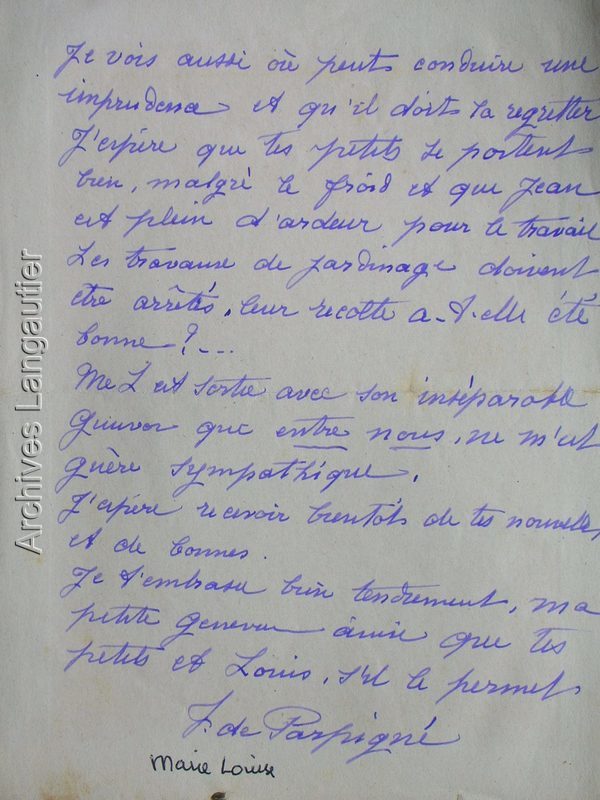 Je vois aussi où peut conduire une
imprudence et qu'il doit la regretter
J'espère que tes petits se portent
bien, malgré le froid et que Jean
est plein d'ardeur pour le travail
Les travaux de jardinage doivent
être arrêtés, leur recolte a-t-elle été
bonne ?...
Me L est sortie avec son inséparable
que entre nous, ne m'est
guère sympathique.
J'espère recevoir bientôt de tes nouvelles,
et de bonnes.
Je t'embrasse bien tendrement, ma
petite que tes
petits et Louis, s'il le permet
J. de Parpigné
Marie Louise
Archives Langautier